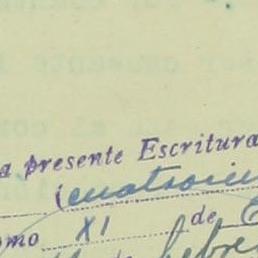 a presente Escritura
(cuatrocien
omo XI de
febre